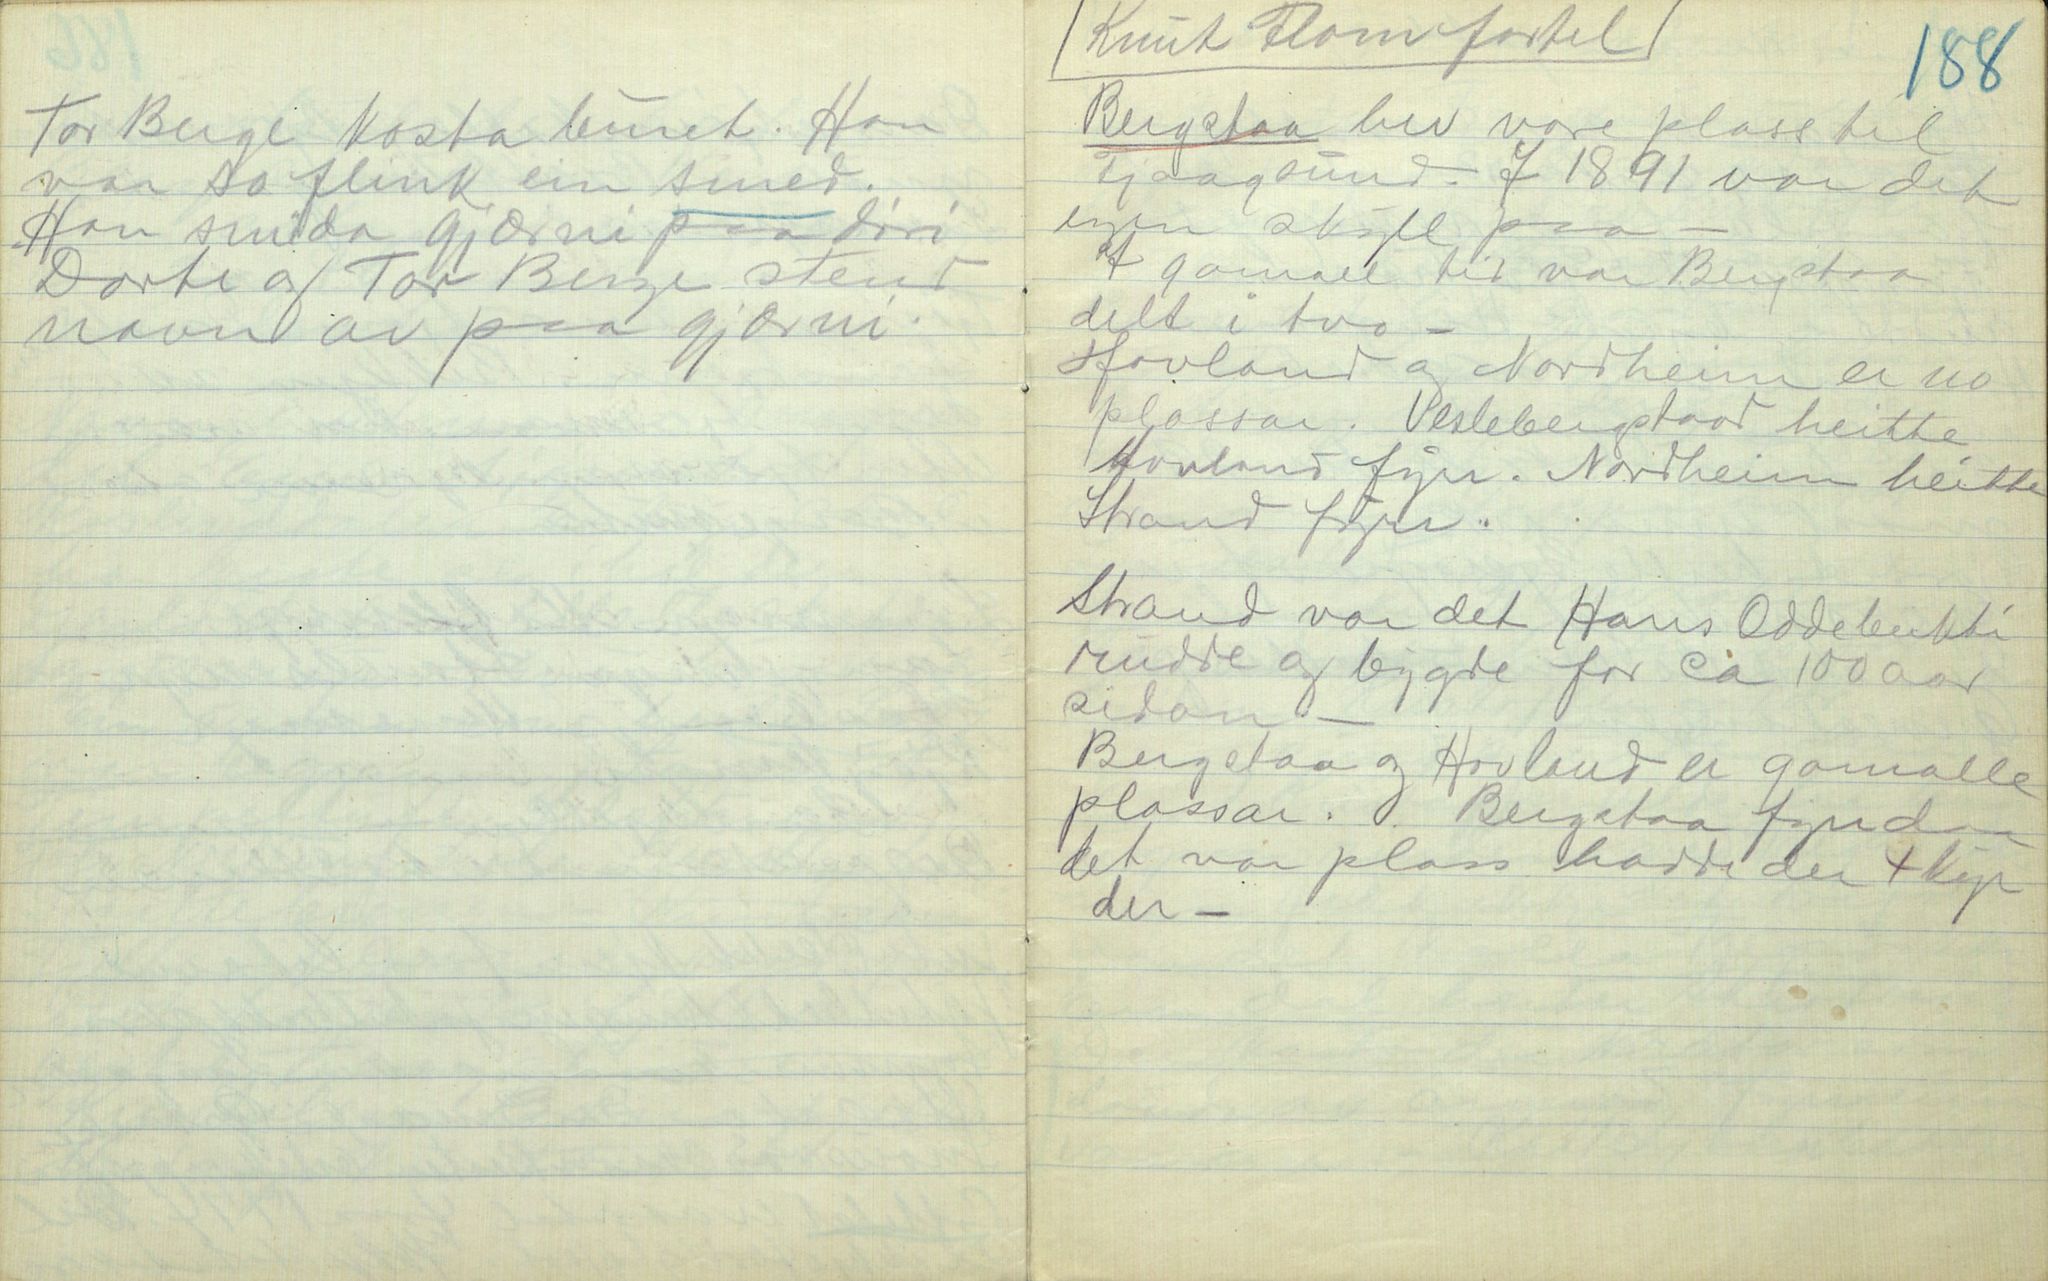 Tor Berge kosta buret. Han
var so flink ein smed.
Han smida gjærni paa diri
Dorte og Tor Berge stend
navn av paa gjærni.
Knut Flom fortel
188
Bergstaa hev vore plass til
Tjaagesund. I 1891 var det
eigen skyll paa –
I gamall tid var Bergstaa
delt i tvo –
Hovland og Nordheim er no
plassar. Veslebergstaad heitte
Hovland fyrr. Nordheim heitte
Strand fyrr.
Strand var det Hans Oddebukti
rudde og bygde for ca 100 aar
sidan –
Bergstaa og Hovland er gamalle
plassar. Bergstaa fyrr daa
det var plass hadde der + kyr
der –